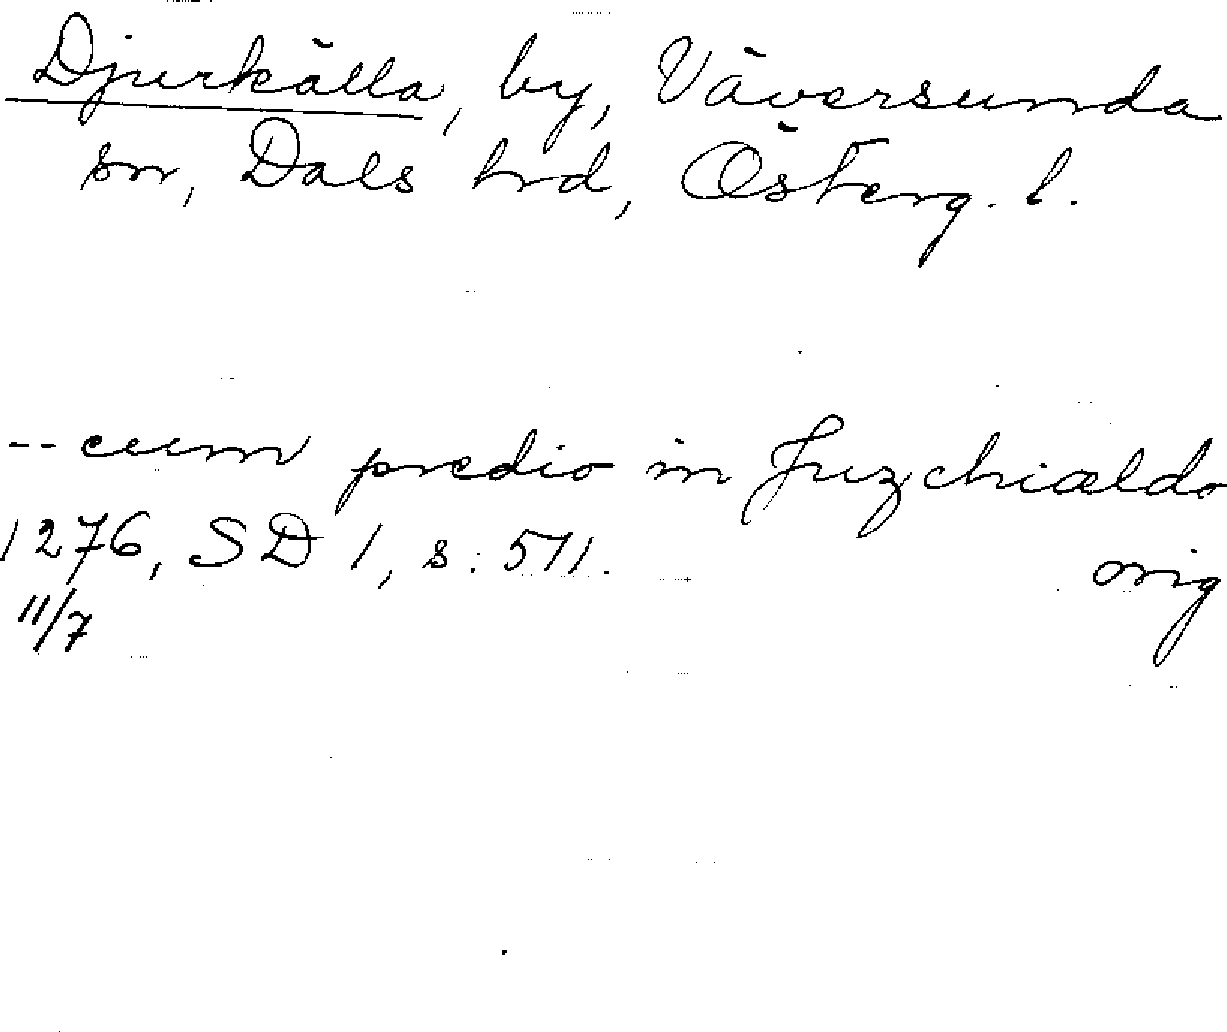 Djurkälla, by, Väversunda
sn, Dals hrd, Österg. l.
-- cum predio in Juzchialdo
1276, SD 1, s: 571.
orig
11/7